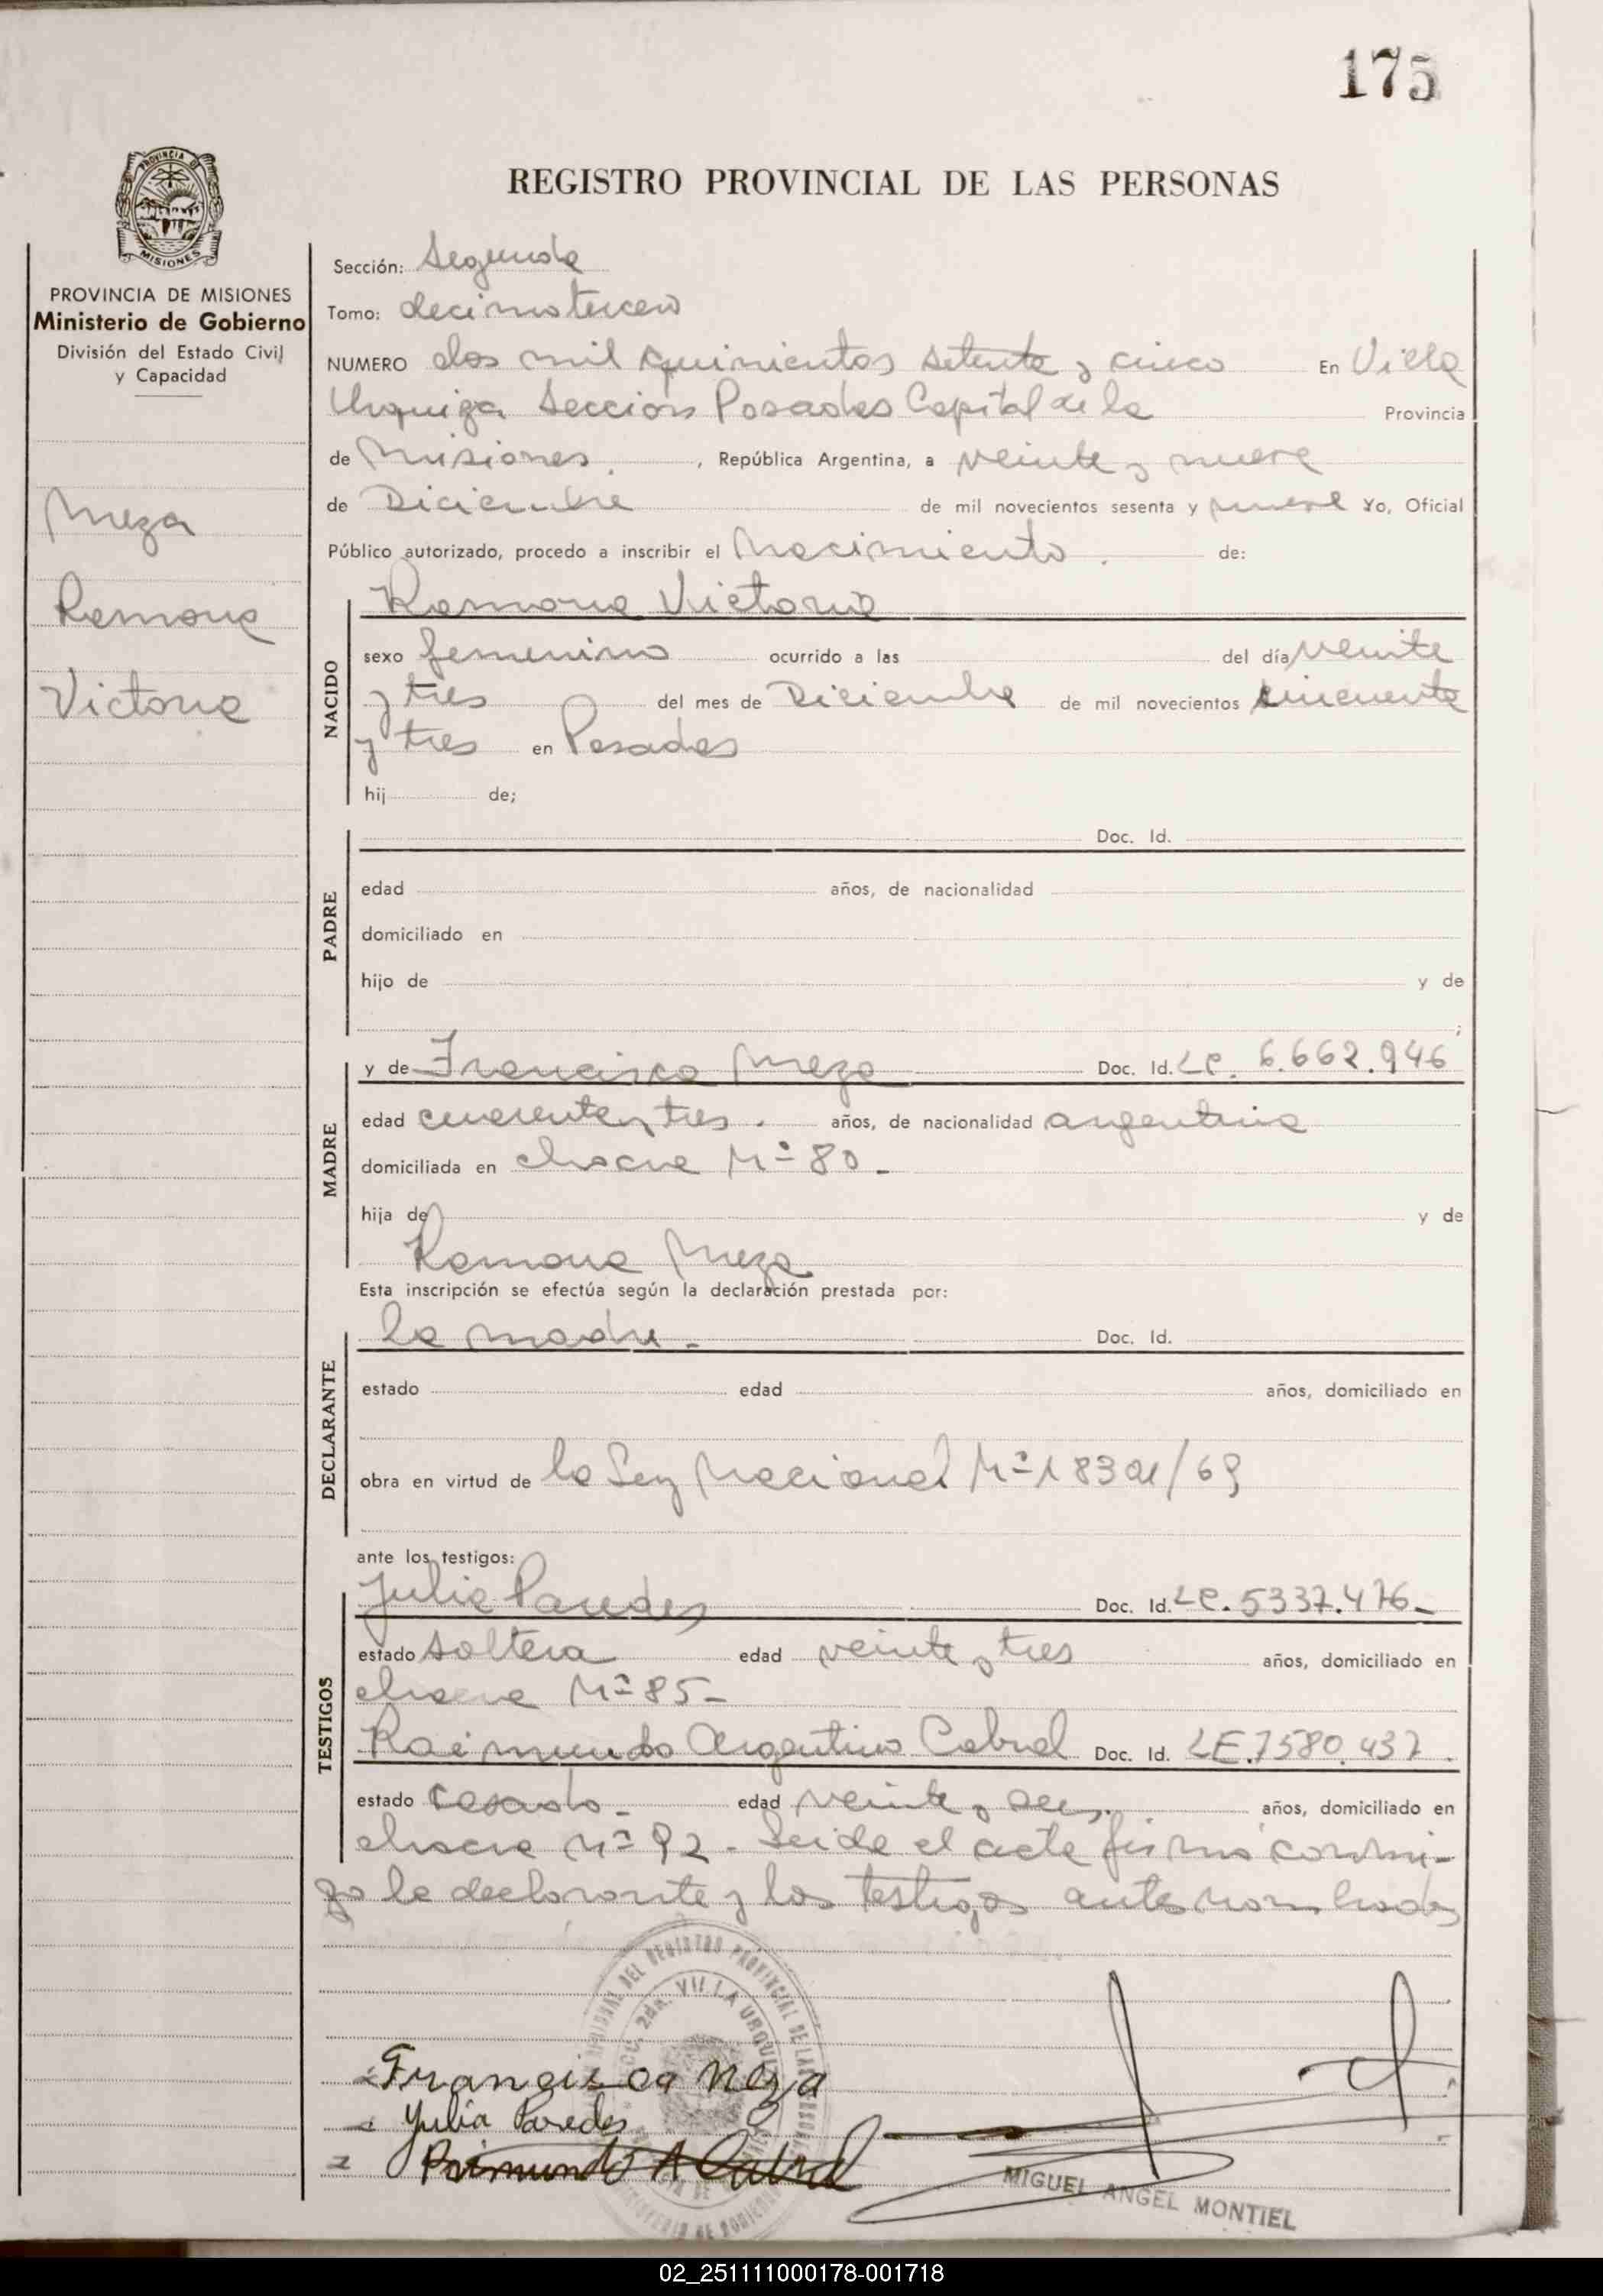 175
REGISTRO PROVINCIAL DE LAS PERSONAS
PROVINCIA DE MISIONES
Ministerio de Gobierno
División del Estado Civil
y Capacidad
Meza
Ramona
Victoria
Sección: Segunda
Tomo: decimotercero
NUMERO dos mil quinientos setenta y cinco En Villa
Urquiza Seccion Posadas Capital de la Provincia
de Misiones. , República Argentina, a veinte y nueve
de Diciembre de mil novecientos sesenta y nueve Yo, Oficial
Público autorizado, procedo a inscribir el Nacimiento. de:
NACIDO
Ramona Victoria
sexo femenino ocurrido a las del día veinte
y tres del mes de Diciembre de mil novecientos cincuenta
y tres en Posadas
hij de;
PADRE
Doc. Id.
edad años, de nacionalidad
domiciliado en
hijo de y de
;
MADRE
y de Francisca Meza Doc. Id. LC. 6.662.946
edad cuarenta y tres. años, de nacionalidad argentina
domiciliada en chacra Nº 80-
hija de y de
Ramona Meza
Esta inscripción se efectúa según la declaración prestada por:
DECLARANTE
la madre- Doc. Id.
estado edad años, domiciliado en
obra en virtud de la Ley Nacional Nº 18301/69
ante los testigos:
TESTIGOS
Julia Paredes Doc. Id. LC. 5337.476-
estado soltera edad veinte y tres años, domiciliado en
chacra Nº 85-
Raimundo Argentino Cabral Doc. Id. LE.7580.437.
estado casado- edad veinte y seis, años, domiciliado en
chacra Nº 92- Leida el acta firmó conmi-
go la declarante y los testigos antes nombrados
2da. VILLA URQUIZA
DEL REGISTRO PROVINCIAL DE LAS PERSONAS
Francisca Meza
Julia Paredes
Raimundo A Cabral
MIGUEL ANGEL MONTIEL
02_251111000178-001718